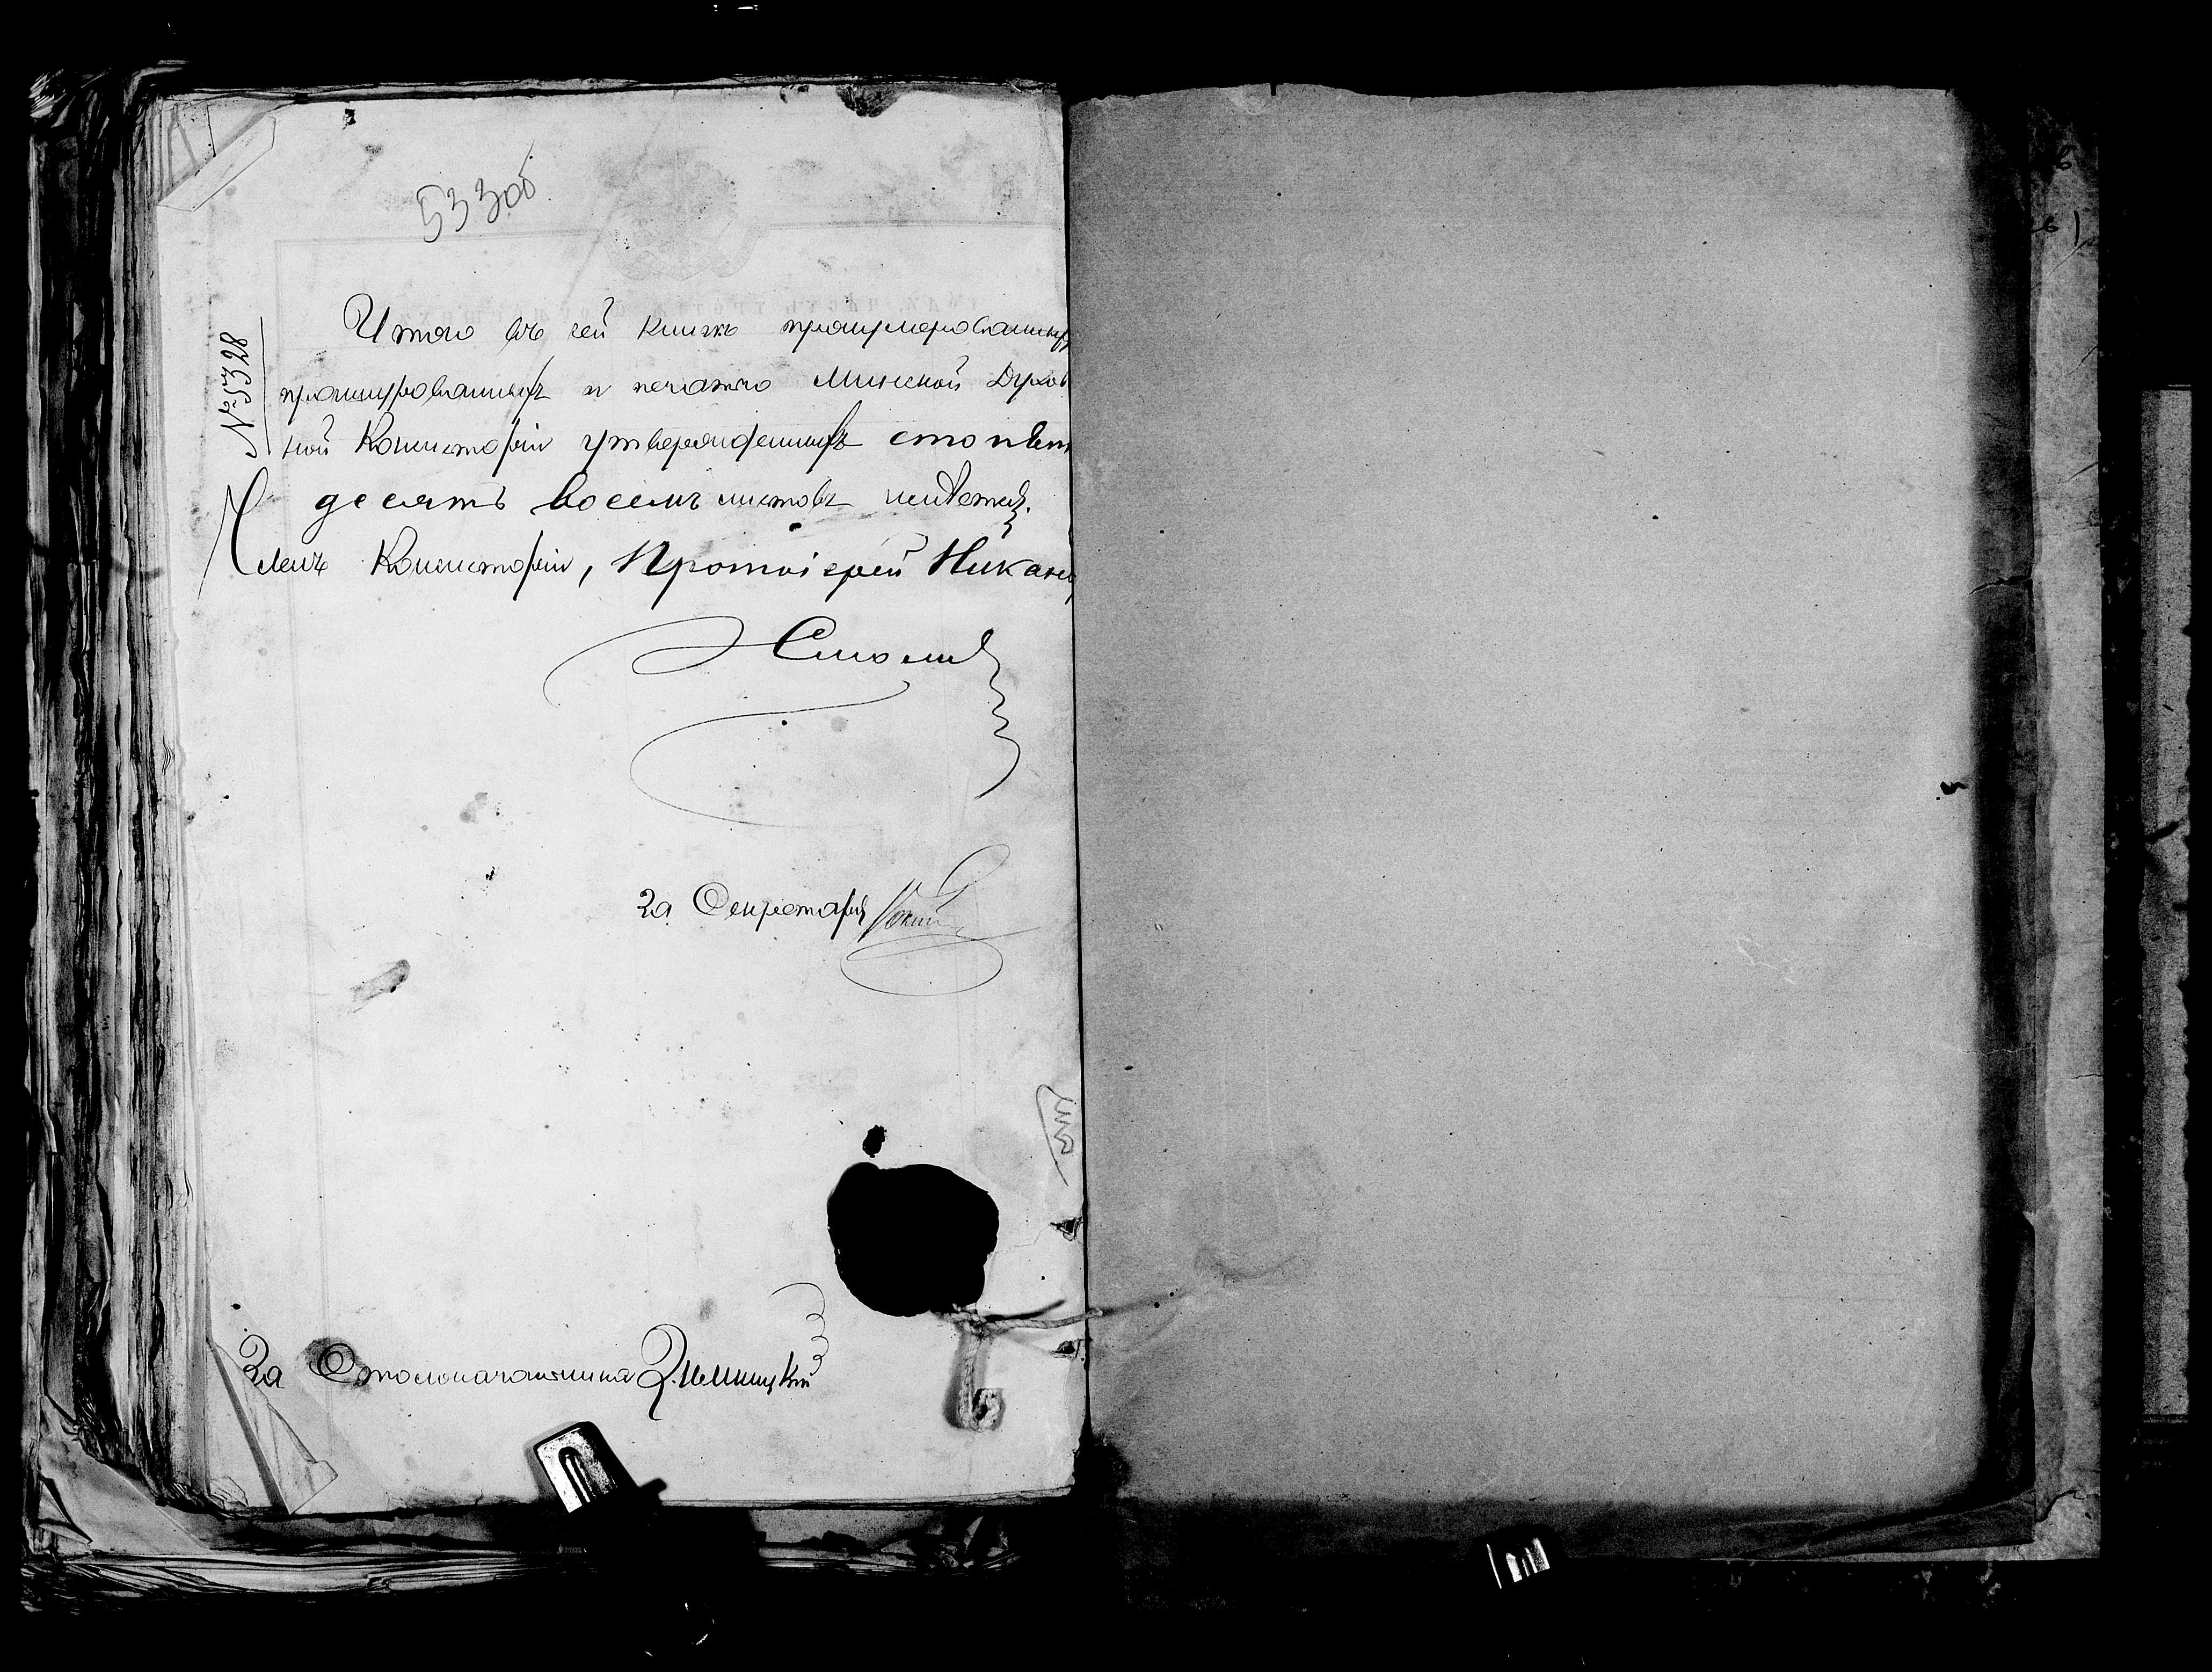 533об
№ 5328
Итого въ сей книгѣ пронумерованныхъ
прошнурованныхъ и печатью Минской Духов
ной Консисторіи утвержденныхъ сто пять
десятъ восемь листовъ
Членъ Консисторіи, Протоіерей Никано
Смолич
За Секретаря
За Столоначальника